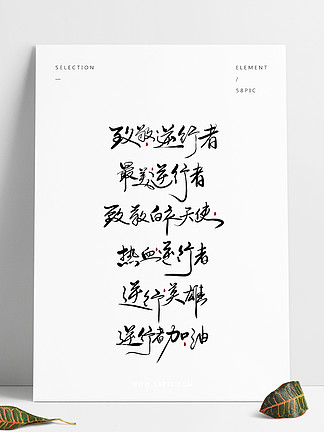 SELECTION
ELEMENT
/
58PIC
致敬逆行者
最美逆行者
致敬白衣天使
热血逆行者
逆行英雄
逆行者加油